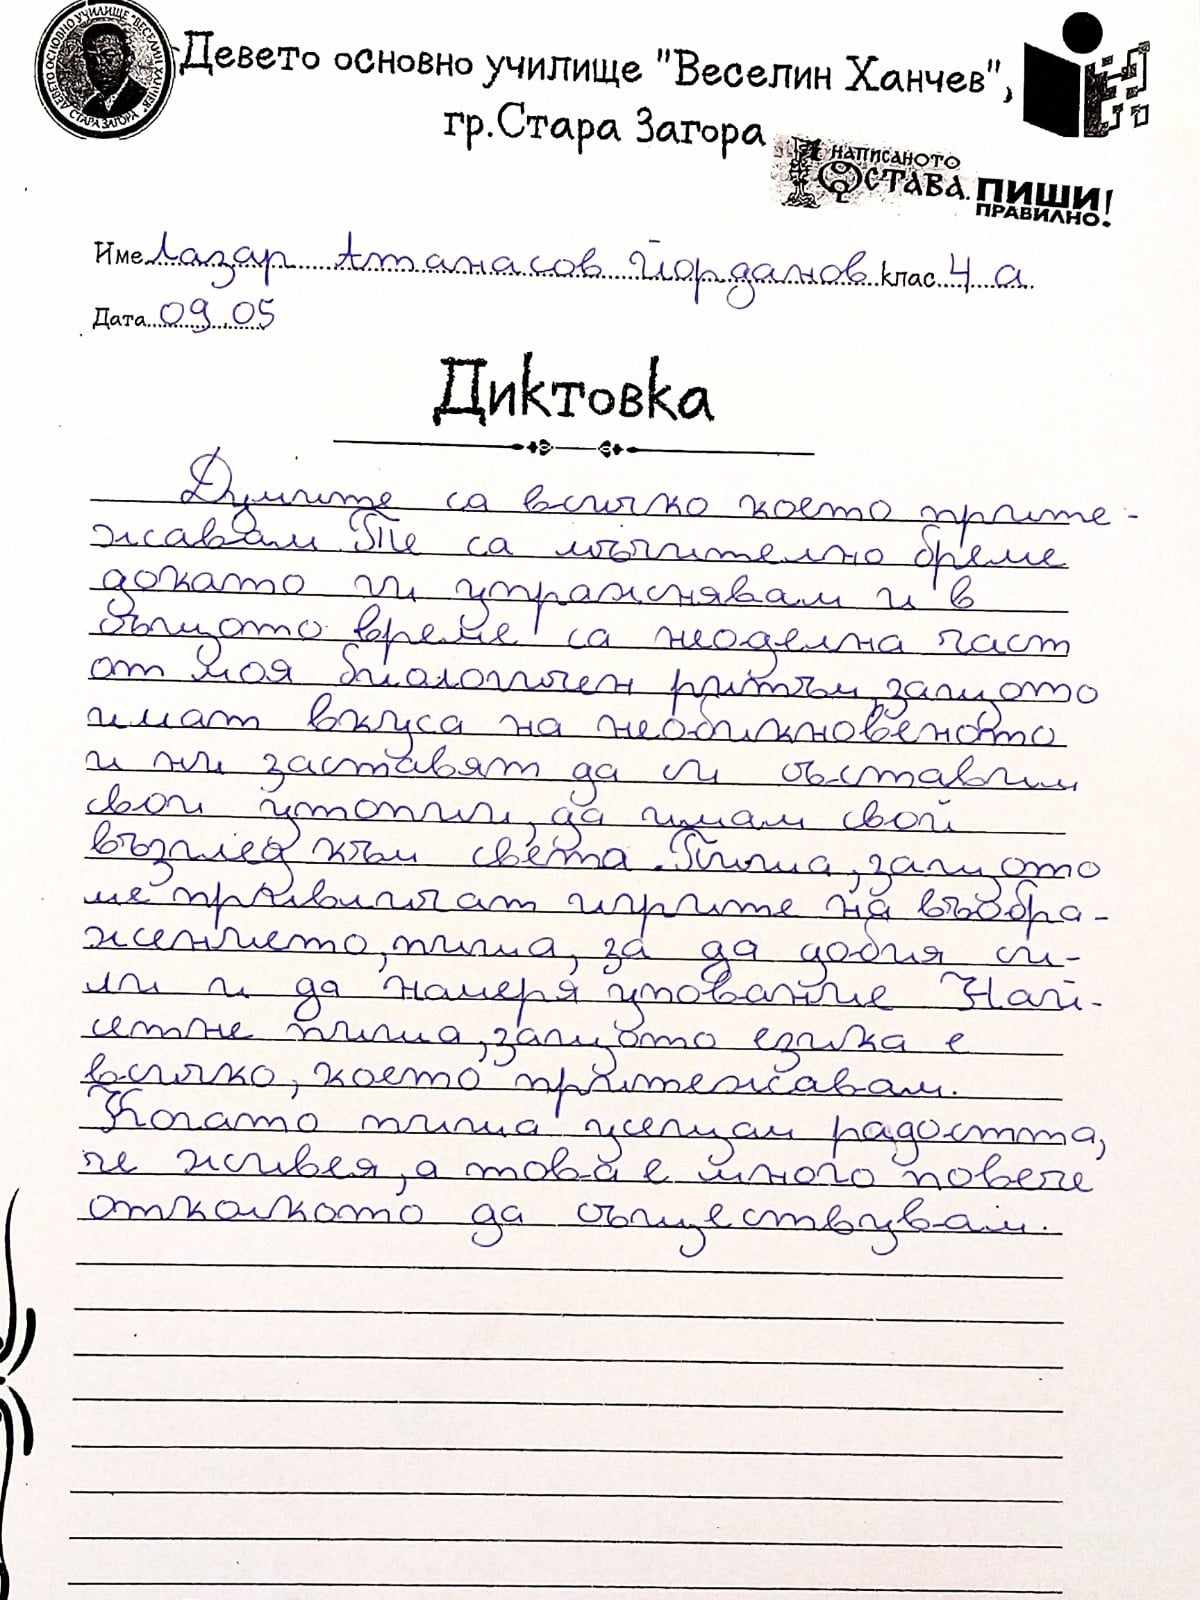 ДЕВЕТО ОСНОВНО УЧИЛИЩЕ "ВЕСЕЛИН ХАНЧЕВ"
СТАРА ЗАГОРА
Девето основно училище "Веселин Ханчев",
гр.Стара Загора
НАПИСАНОТО
ОСТАВА. ПИШИ!
ПРАВИЛНО.
Име Лазар Атанасов Йорданов клас 4 а
Дата 09.05
Диктовка
Думите са всичко което прите-
жавам Те са мъчително бреме
докато ги упражнявам и в
същото време са неоделна част
от моя биологичен ритъм, защото
имат вкуса на необикновеното
и ни заставят да си съставим
свои утопии, да имам свой
възглед към света. Пиша, защото
ме привличат игрите на въобра-
жението, пиша, за да добия си-
ли и да намеря упование Най-
сетне пиша, защото езика е
всичко, което притежавам.
Когато пиша усещам радостта,
че живея, а това е много повече
отколкото да съществувам.